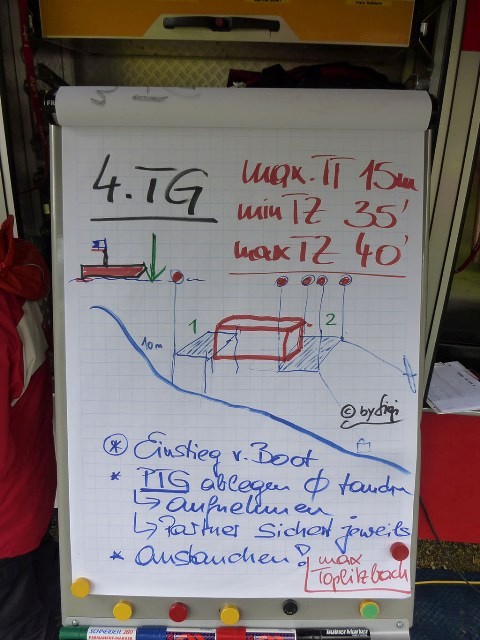 4. TG
max. TT 15m
min TZ 35'
max TZ 40'
1
2
10m
© by Sigi
* Einstieg v. Boot
* PTG ablegen φ tandem
↳ aufnehmen
↳ Partner sichert jeweils
* Austauchen?
max
Toplitzbach